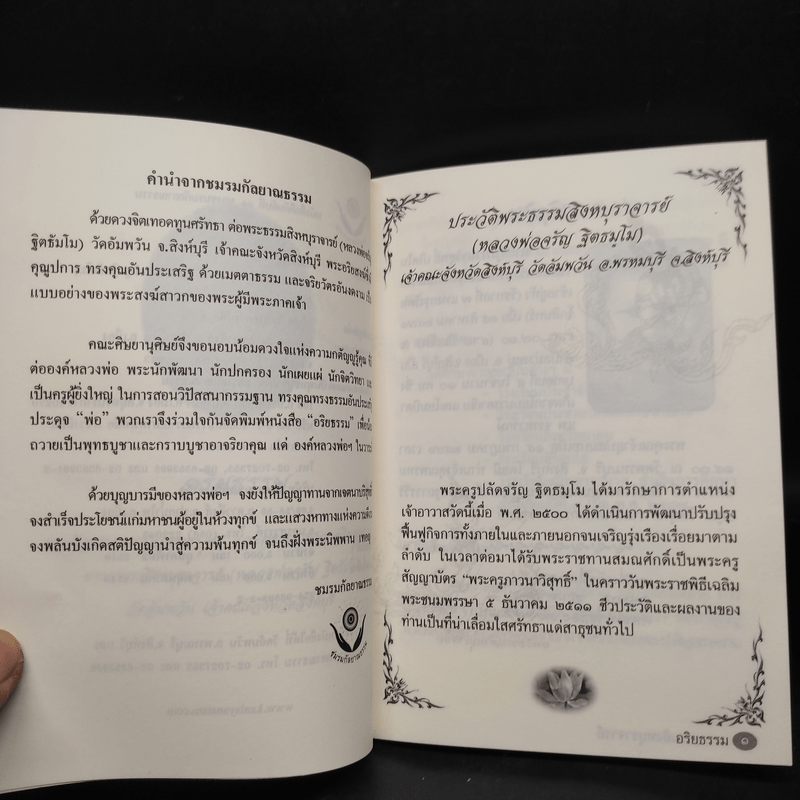 คำนำจากชมรมกัลยาณธรรม
ด้วยดวงจิตเทอดทูนศรัทธา ต่อพระธรรมสิงหบุราจารย์ (หลวงพ่อจรัญ
ฐิตธัมโม) วัดอัมพวัน จ.สิงห์บุรี เจ้าคณะจังหวัดสิงห์บุรี พระอริยสงฆ์
คุณูปการ ทรงคุณอันประเสริฐ ด้วยเมตตาธรรม และจริยวัตรอันงดงาม
แบบอย่างของพระสงฆ์สาวกของพระผู้มีพระภาคเจ้า
คณะศิษยานุศิษย์จึงขอนอบน้อมดวงใจแห่งความกตัญญูรู้คุณ
ต่อองค์หลวงพ่อ พระนักพัฒนา นักปกครอง นักเผยแผ่ นักจิตวิทยา
เป็นครูผู้ยิ่งใหญ่ ในการสอนวิปัสสนากรรมฐาน ทรงคุณทรงธรรมอัน
ประดุจ “พ่อ” พวกเราจึงร่วมใจกันจัดพิมพ์หนังสือ “อริยธรรม”
ถวายเป็นพุทธบูชาและกราบบูชาอาจริยาคุณ แด่ องค์หลวงพ่อฯ
ด้วยบุญบารมีของหลวงพ่อฯ จงยังให้ปัญญาทานจากเจตนาบริสุทธิ์
จงสำเร็จประโยชน์แก่มหาชนผู้อยู่ในห้วงทุกข์ และแสวงหาทางแห่งความ
จงพลันบังเกิดสติปัญญานำสู่ความพ้นทุกข์ จนถึงฝั่งพระนิพพาน เทอญ
ชมรมกัลยาณธรรม
ชมรมกัลยาณธรรม
ประวัติพระธรรมสิงหบุราจารย์
(หลวงพ่อจรัญ ฐิตธมฺโม)
เจ้าคณะจังหวัดสิงห์บุรี วัดอัมพวัน อ.พรหมบุรี จ.สิงห์บุรี
พระครูปลัดจรัญ ฐิตธมฺโม ได้มารักษาการตำแหน่ง
เจ้าอาวาสวัดนี้เมื่อ พ.ศ. ๒๕๐๐ ได้ดำเนินการพัฒนาปรับปรุง
ฟื้นฟูกิจการทั้งภายในและภายนอกจนเจริญรุ่งเรืองเรื่อยมาตาม
ลำดับ ในเวลาต่อมาได้รับพระราชทานสมณศักดิ์เป็นพระครู
สัญญาบัตร “พระครูภาวนาวิสุทธิ์” ในคราววันพระราชพิธีเฉลิม
พระชนมพรรษา ๕ ธันวาคม ๒๕๑๑ ชีวประวัติและผลงานของ
ท่านเป็นที่น่าเลื่อมใสศรัทธาแด่สาธุชนทั่วไป
อริยธรรม ๑